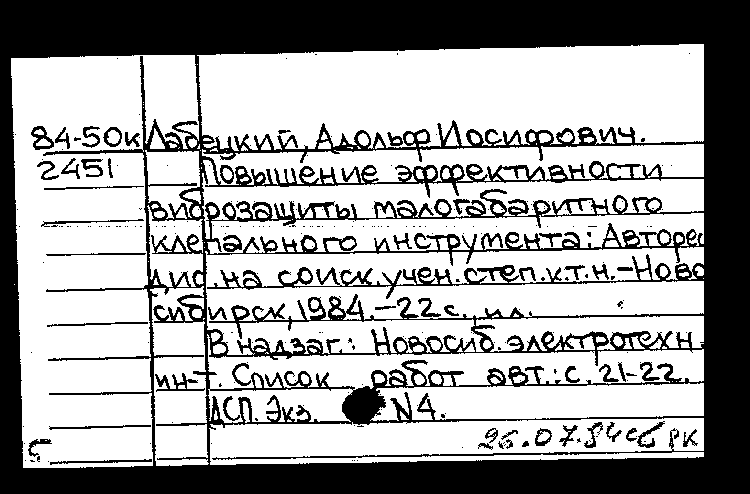 84-50к Лабецкий, Адольф Иосифович.
2451 Повышение эффективности
виброзащиты малогабаритного
клепального инструмента: Авторе
дис. на соиск. учен. степ. к.т.н. - Ново
сибирск, 1984. - 22 с., ил.
В надзаг.: Новосиб. электротехн.
ин-т. Список работ авт.: с. 21-22.
ДСП. Экз. N4.
26.07.84 сб РК